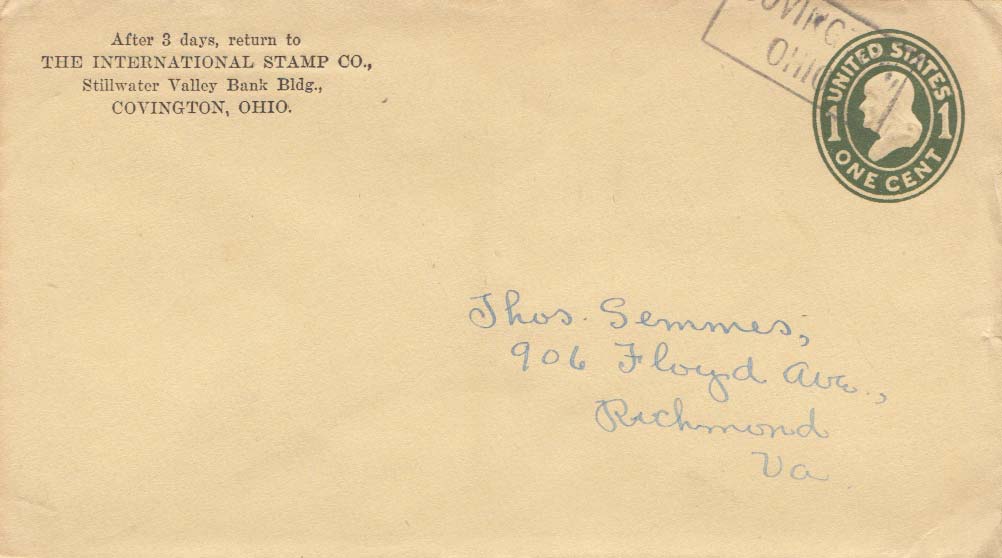 After 3 days, return to
THE INTERNATIONAL STAMP CO.,
Stillwater Valley Bank Bldg.,
COVINGTON, OHIO.
OHIO
UNITED STATES
1 1
ONE CENT
Thos. Semmes,
906 Floyd Ave.,
Richmond
Va.